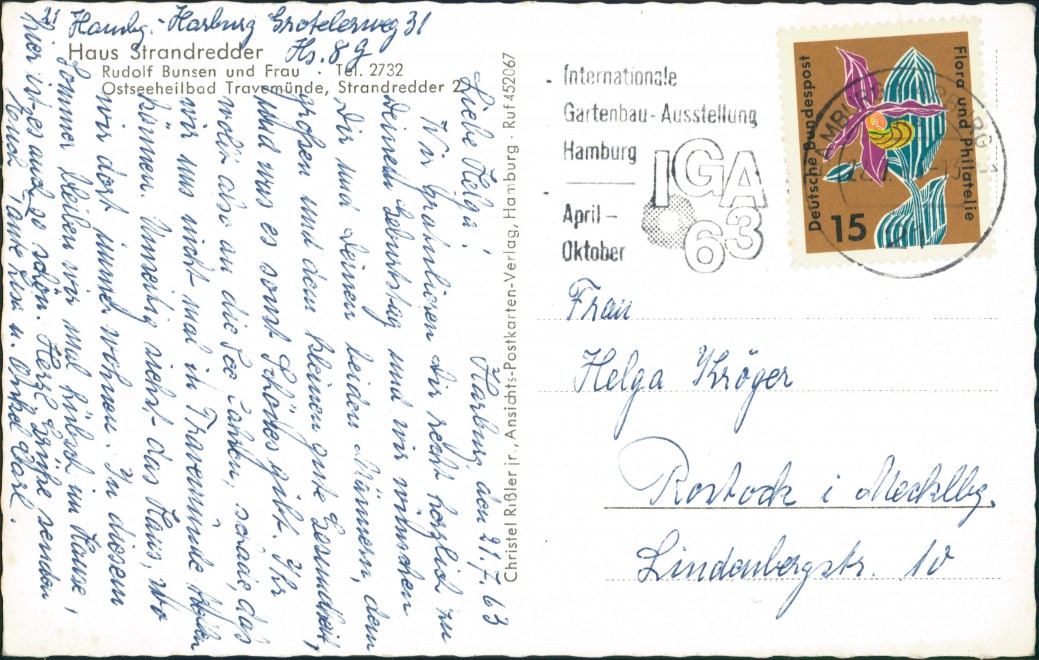 zz Hambg.-Harburg Grotelersweg 31
Hs. 8 g
Haus Strandredder
Rudolf Bunsen und Frau · Tel. 2732
Ostseeheilbad Travemünde, Strandredder 2
Harburg, den 21.7.63
Liebe Helga!
Wir gratulieren dir recht herzlich zu
Deinem Geburtstag und wir wünschen
Dir und Deinen beiden Männern, dem
großen und dem kleinen gute Gesundheit,
und was es sonst Schönes gibt. Ihr
wollt also an die See fahren, schade, das
wir uns nicht mal in Travemünde treffen
können. Umseitig siehst das Haus, wo
wir dort immer wohnen. In diesem
Sommer bleiben wir mal hübsch im Hause,
hier ist es auch so schön. Herzl. Grüße senden
Euch Tante u. Onkel Karl.
Christel Rißler jr., Ansichts-Postkarten-Verlag, Hamburg · Ruf 452067
Internationale
Gartenbau-Ausstellung
Hamburg
April –
Oktober
IGA
63
Deutsche Bundespost
Flora und Philatelie
15
Frau
Helga Kröger
Rostock i Mecklbg.
Lindenbergstr. 10